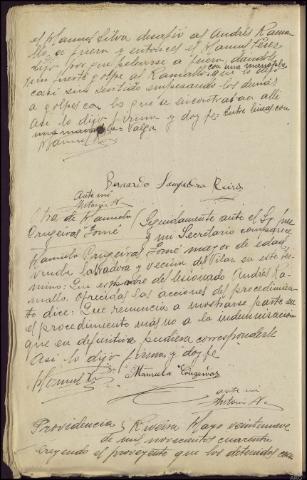 el Manuel Silva desafió al Andrés Rama
llo, se fueron y entonces el Manuel Perez
dijo por que pelearse a fueron, dandole
con una manopla
un fuerte golpe al Ramallo, que lo dejó
casi sin sentido empezando los demás
a golpes con los que se encontraban alli.
Asi lo dijo firma y doy fe. Entre lineas con
una manopla = Valga
Manuel
Bernardo Sanjurjo
Ante mi
Antonio
Otra de Manuela
Cougeiras Tomé
Seguidamente ante el Sr Juez
y mi Secretario comparece
Manuela Cougeiras Tomé mayor de edad
viuda labradora y vecina del Pilar en este ter
mino: Que es madre del lesionado Andrés Ra
mallo, ofrecidas las acciones del procedimien
to dice: Que renuncia a mostrarse parte en
el procedimiento mas no a la indemnización
que en definitiva pudiera corresponderle
Asi lo dijo firma y doy fe
Manuel
Manuela Cougeiras
ante mi
Antonio
Providencia Riveira Mayo veintinueve
de mil novecientos cuarenta
creyendo el proveyente que los detenidos con